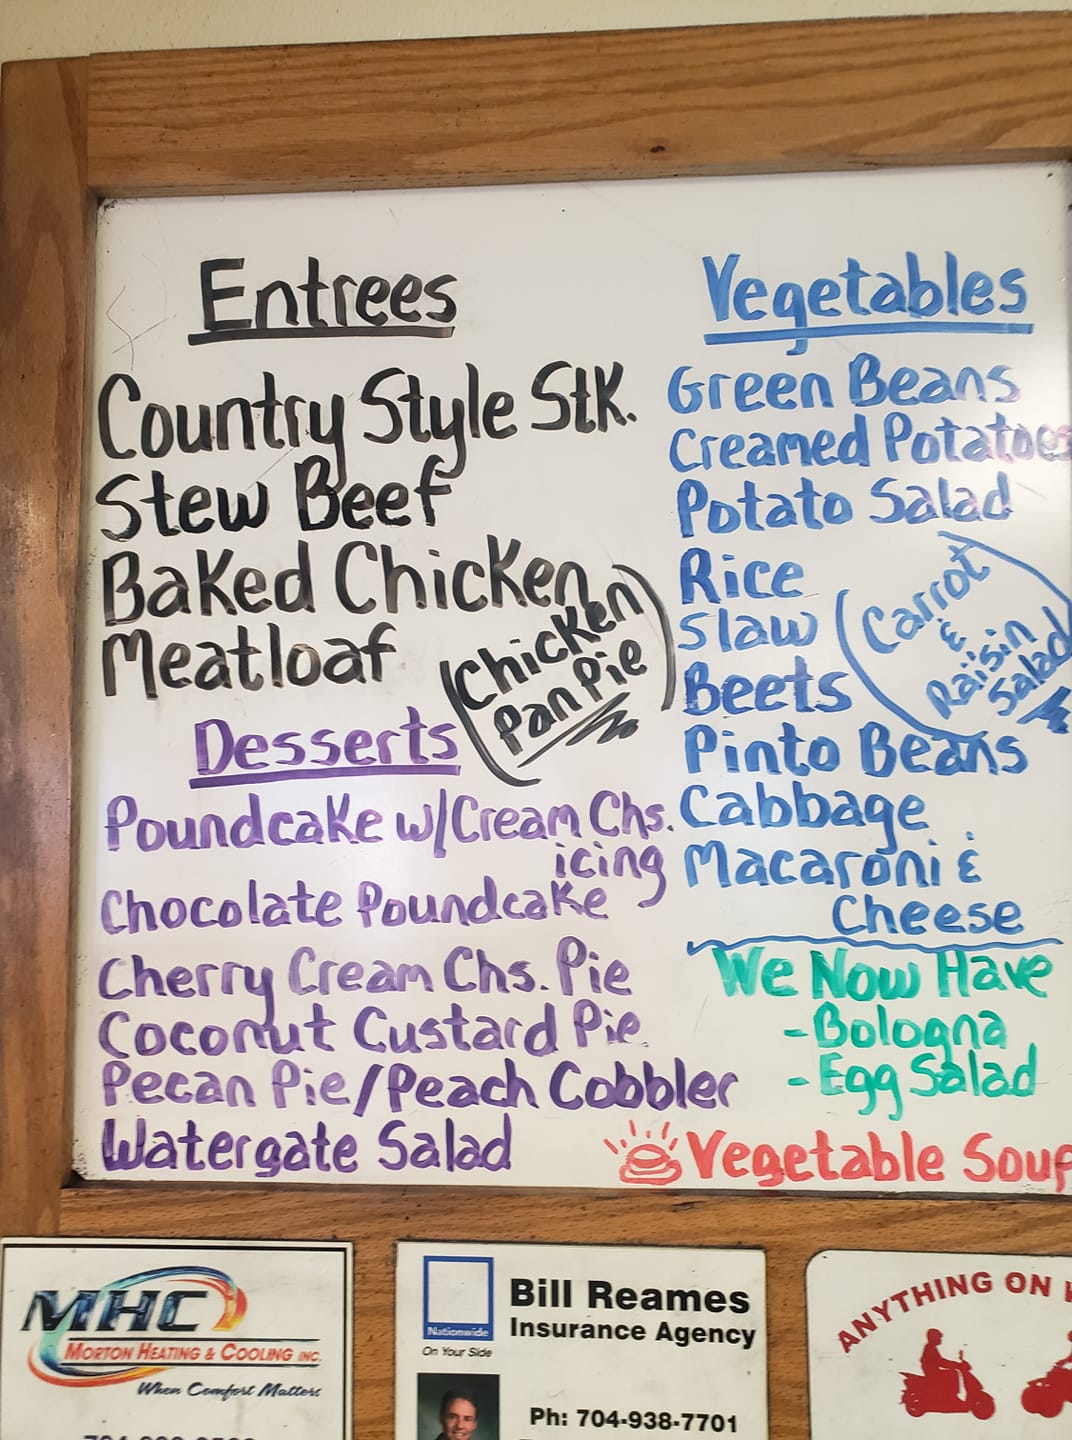 Entrees
Country Style Stk.
Stew Beef
Baked Chicken
Meatloaf
(Chicken
Pan Pie)
Desserts
Poundcake w/Cream Chs.
icing
Chocolate Poundcake
Cherry Cream Chs. Pie
Coconut Custard Pie
Pecan Pie/Peach Cobbler
Watergate Salad
Vegetables
Green Beans
Creamed Potatoes
Potato Salad
Rice
Slaw
(Carrot
&
Raisin
Salad)
Beets
Pinto Beans
Cabbage
Macaroni &
Cheese
We Now Have
- Bologna
- Egg Salad
Vegetable Soup
MHC
MORTON HEATING & COOLING INC.
When Comfort Matters
Nationwide
On Your Side
Bill Reames
Insurance Agency
Ph: 704-938-7701
ANYTHING ON